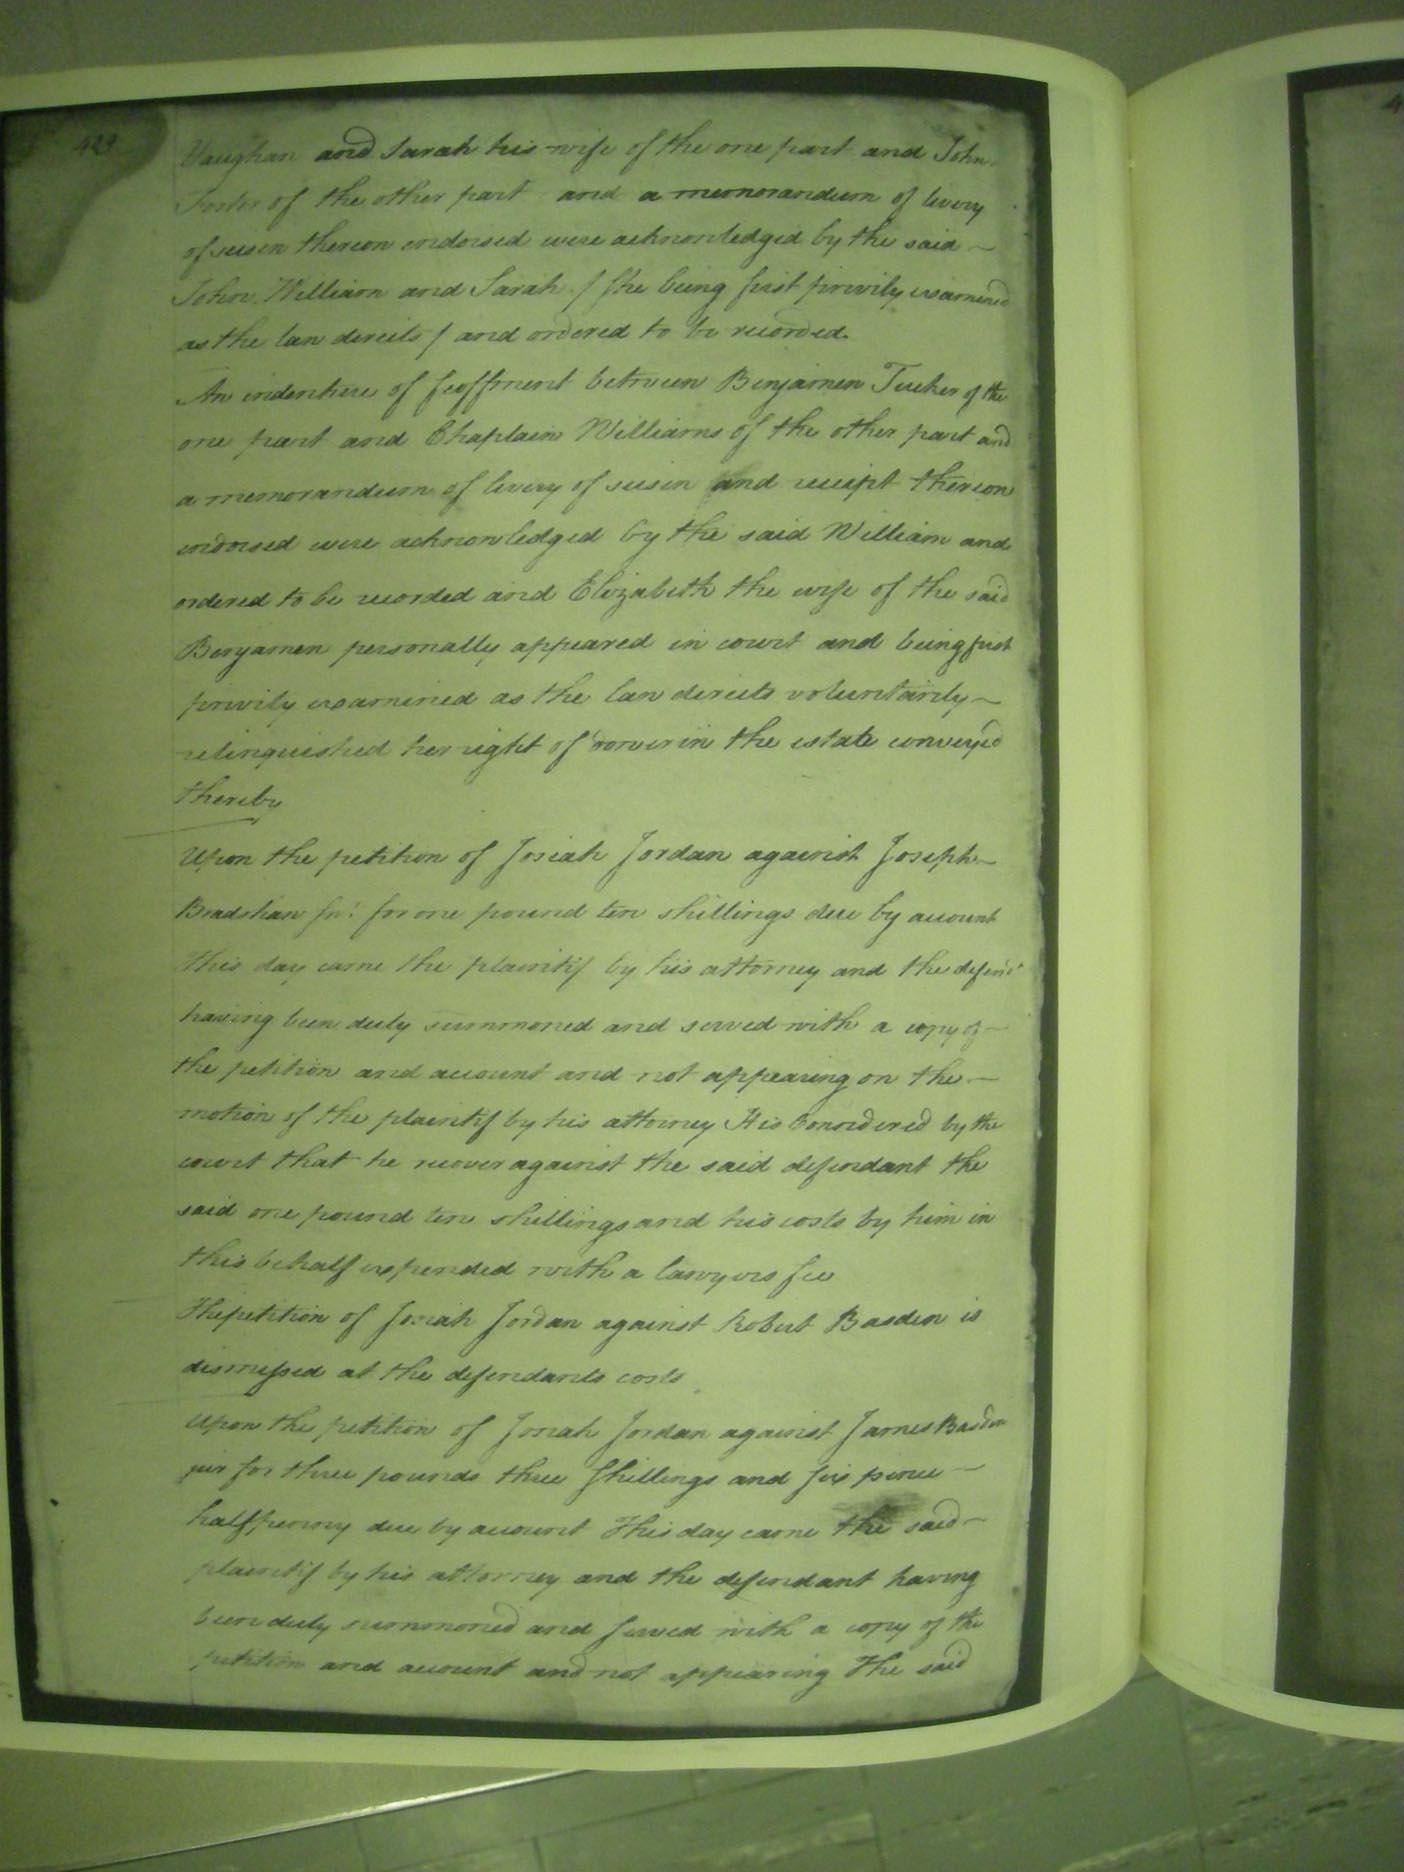 429
Vaughan and Sarah his wife of the one part and John
Foster of the other part and a memorandum of livery
of seisen thereon endorsed were acknowledged by the said
John William and Sarah / she being first privily examined
as the law directs / and ordered to be recorded.
An indenture of feoffment between Benjamen Tucker of the
one part and Chaplain Williams of the other part and
a memorandum of livery of seisin and receipt thereon
endorsed were acknowledged by the said William and
ordered to be recorded and Elizabeth the wife of the said
Benjamen personally appeared in court and being first
privily examined as the law directs voluntarily
relinquished her right of dower in the estate conveyed
thereby
Upon the petition of Josiah Jordan against Joseph
Bradshaw for one pound ten shillings due by account
This day came the plaintif by his attorney and the defend.t
having been duly summoned and served with a copy of
the petition and account and not appearing on the
motion of the plaintif by his attorney It is Considered by the
court that he recover against the said defendant the
said one pound ten shillings and his costs by him in
this behalf expended with a lawyers fee
The petition of Josiah Jordan against Robert Basden is
dismissed at the defendants costs
Upon the petition of Josiah Jordan against James Basden
jur for three pounds three shillings and six pence
halfpenny due by account This day came the said
plaintif by his attorney and the defendant having
been duly summoned and served with a copy of the
petition and account and not appearing The said